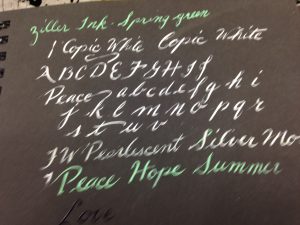 Ziller Ink - Spring green
1 Copic White Copic White
A B C D E F G H I J
Peace a b c d e f g h i
j k l m n o p q r
s t u v
1 W Pearlescent Silver Mo
1 Peace Hope Summer
Love